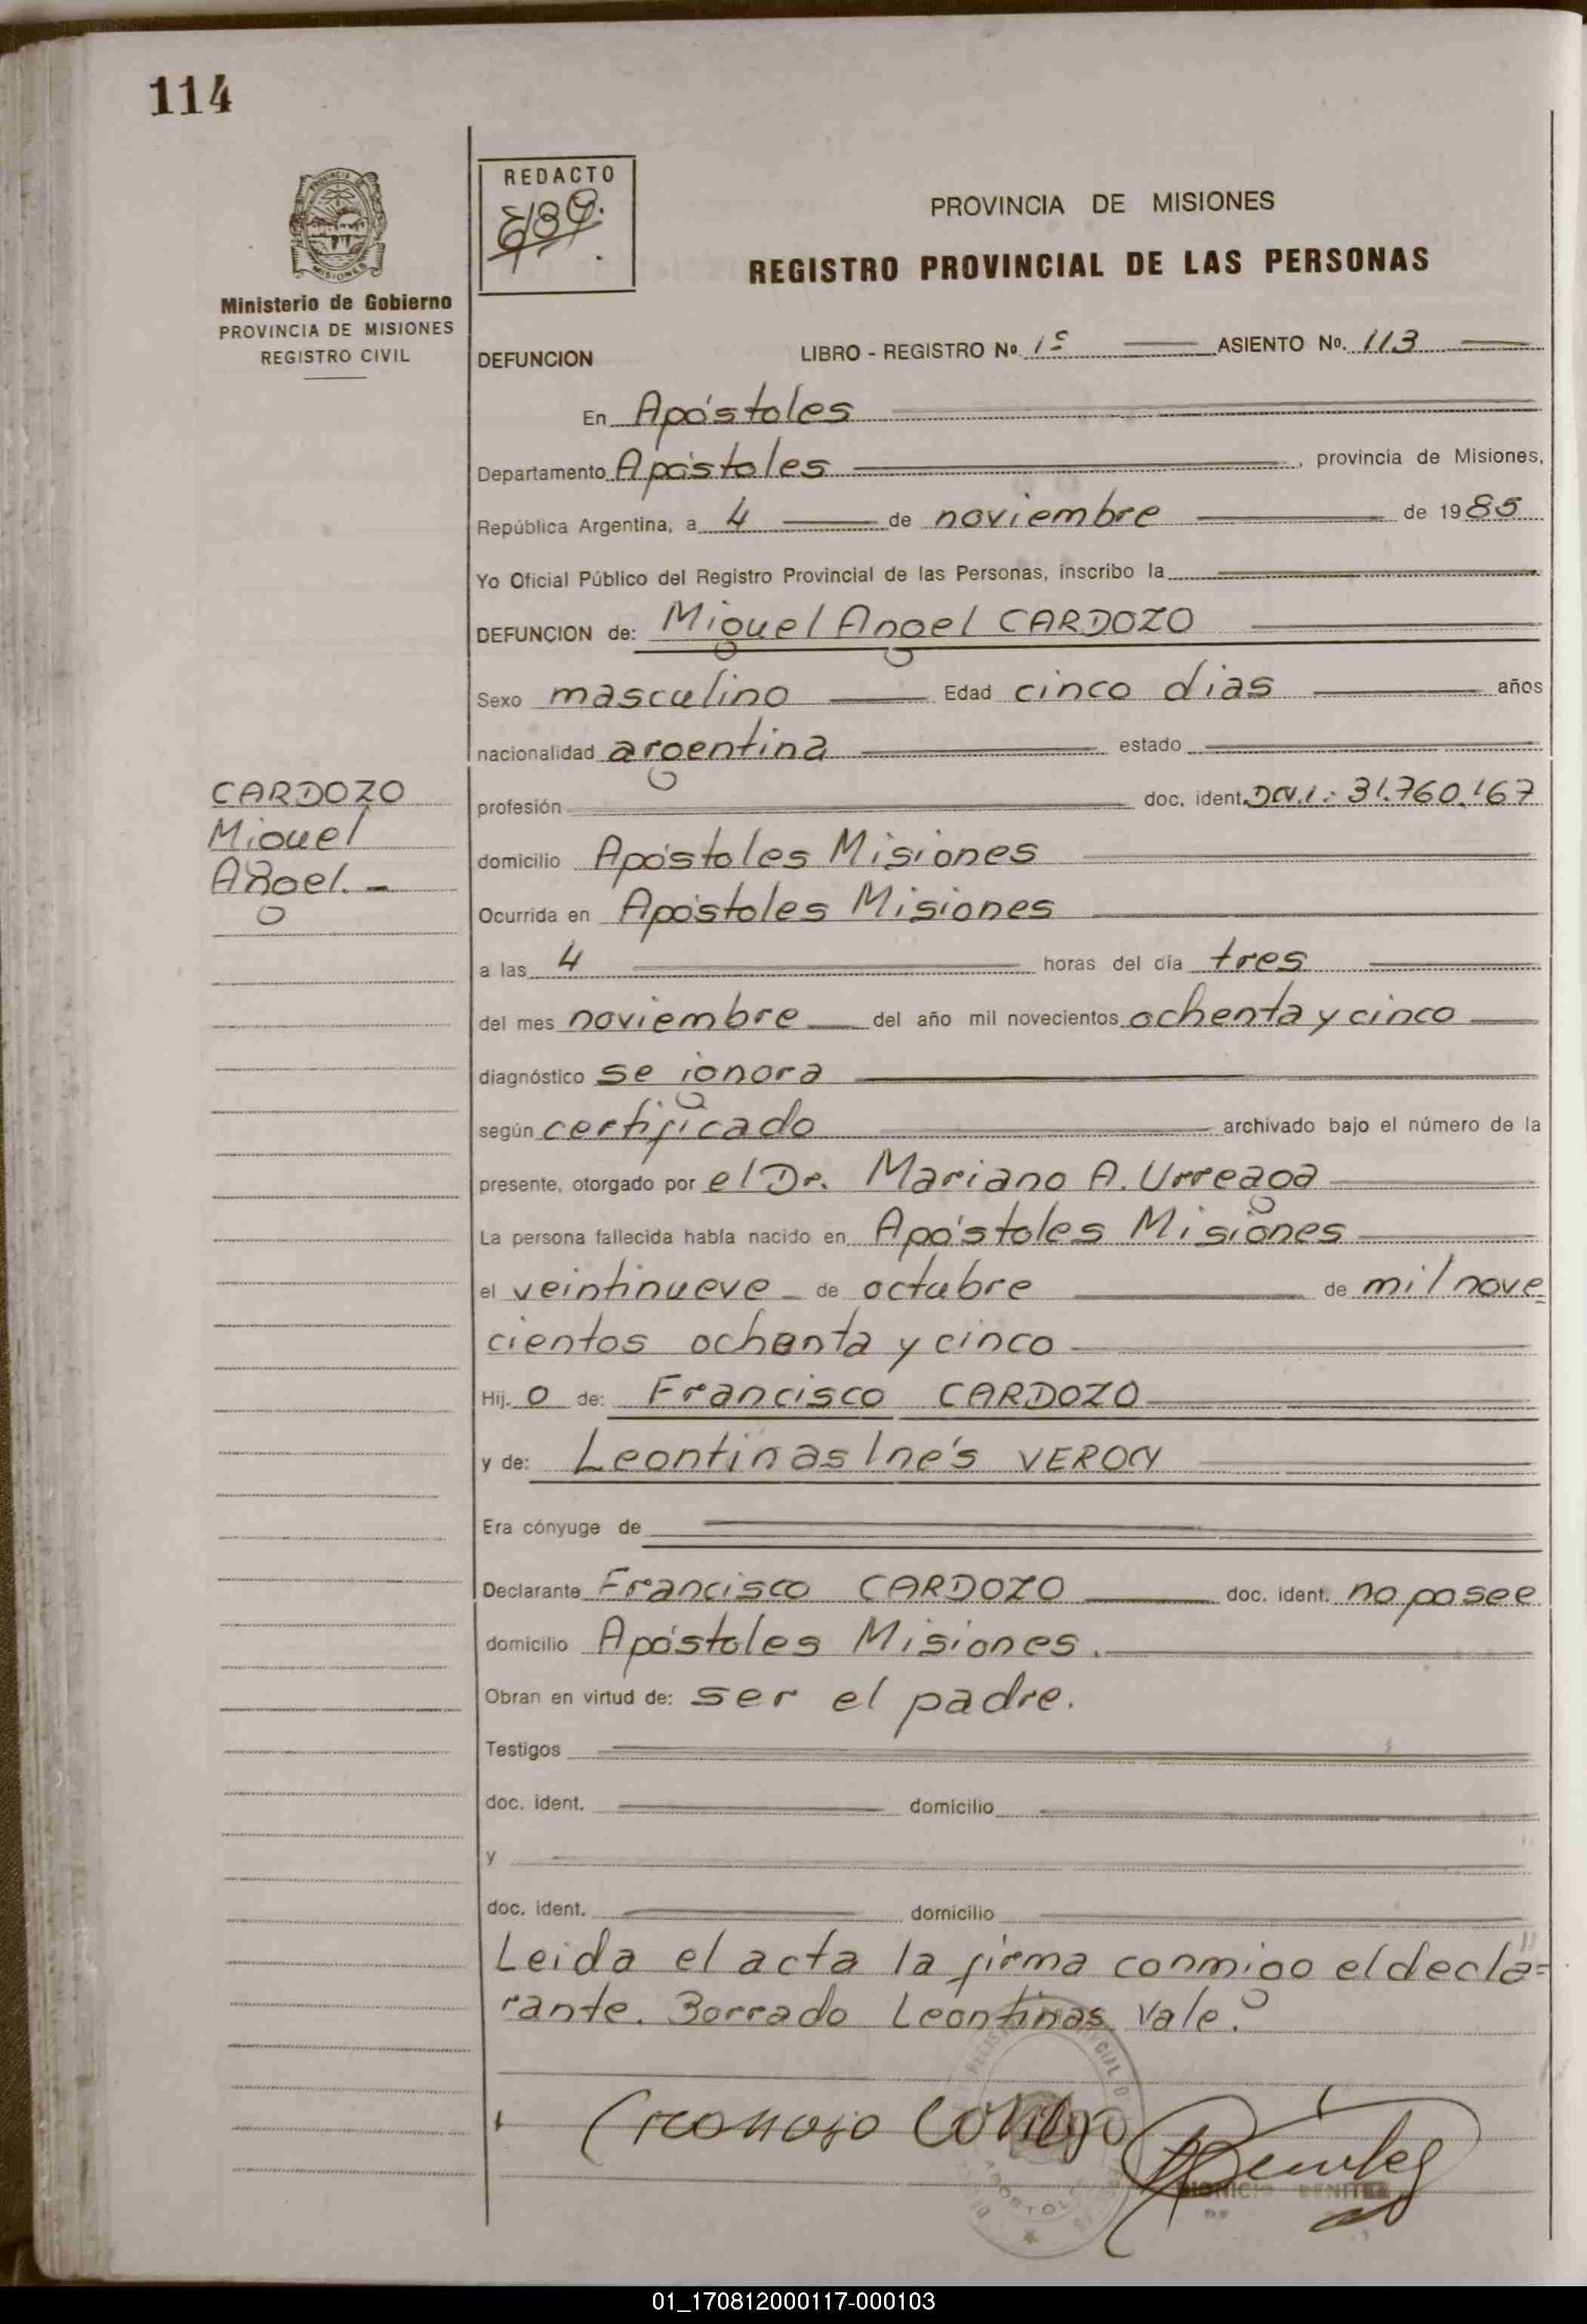 114
REDACTO
PROVINCIA DE MISIONES
REGISTRO PROVINCIAL DE LAS PERSONAS
Ministerio de Gobierno
PROVINCIA DE MISIONES
REGISTRO CIVIL
DEFUNCION LIBRO - REGISTRO Nº 1º ASIENTO Nº. 113
En Apóstoles
Departamento Apóstoles, provincia de Misiones,
República Argentina, a 4 de noviembre de 1985
Yo Oficial Público del Registro Provincial de las Personas, inscribo la
DEFUNCION de: Miguel Angel CARDOZO
Sexo masculino Edad cinco dias años
nacionalidad argentina estado
CARDOZO
Miguel
Angel. -
profesión doc. ident. D.N.I.: 31.760.167
domicilio Apóstoles Misiones
Ocurrida en Apóstoles Misiones
a las 4 horas del día tres
del mes noviembre del año mil novecientos ochenta y cinco
diagnóstico se ignora
según certificado archivado bajo el número de la
presente, otorgado por el Dr. Mariano A. Urreaga
La persona fallecida había nacido en Apóstoles Misiones
el veintinueve de octubre de mil nove
cientos ochenta y cinco
Hij. o de: Francisco CARDOZO
y de: Leontinas Inés VERON
Era cónyuge de
Declarante Francisco CARDOZO doc. ident. no posee
domicilio Apóstoles Misiones.
Obran en virtud de: ser el padre.
Testigos
doc. ident. domicilio
y
doc. ident. domicilio
Leida el acta la firma conmigo el decla=
rante. Borrado Leontinas Vale.
BENITEZ
01_170812000117-000103